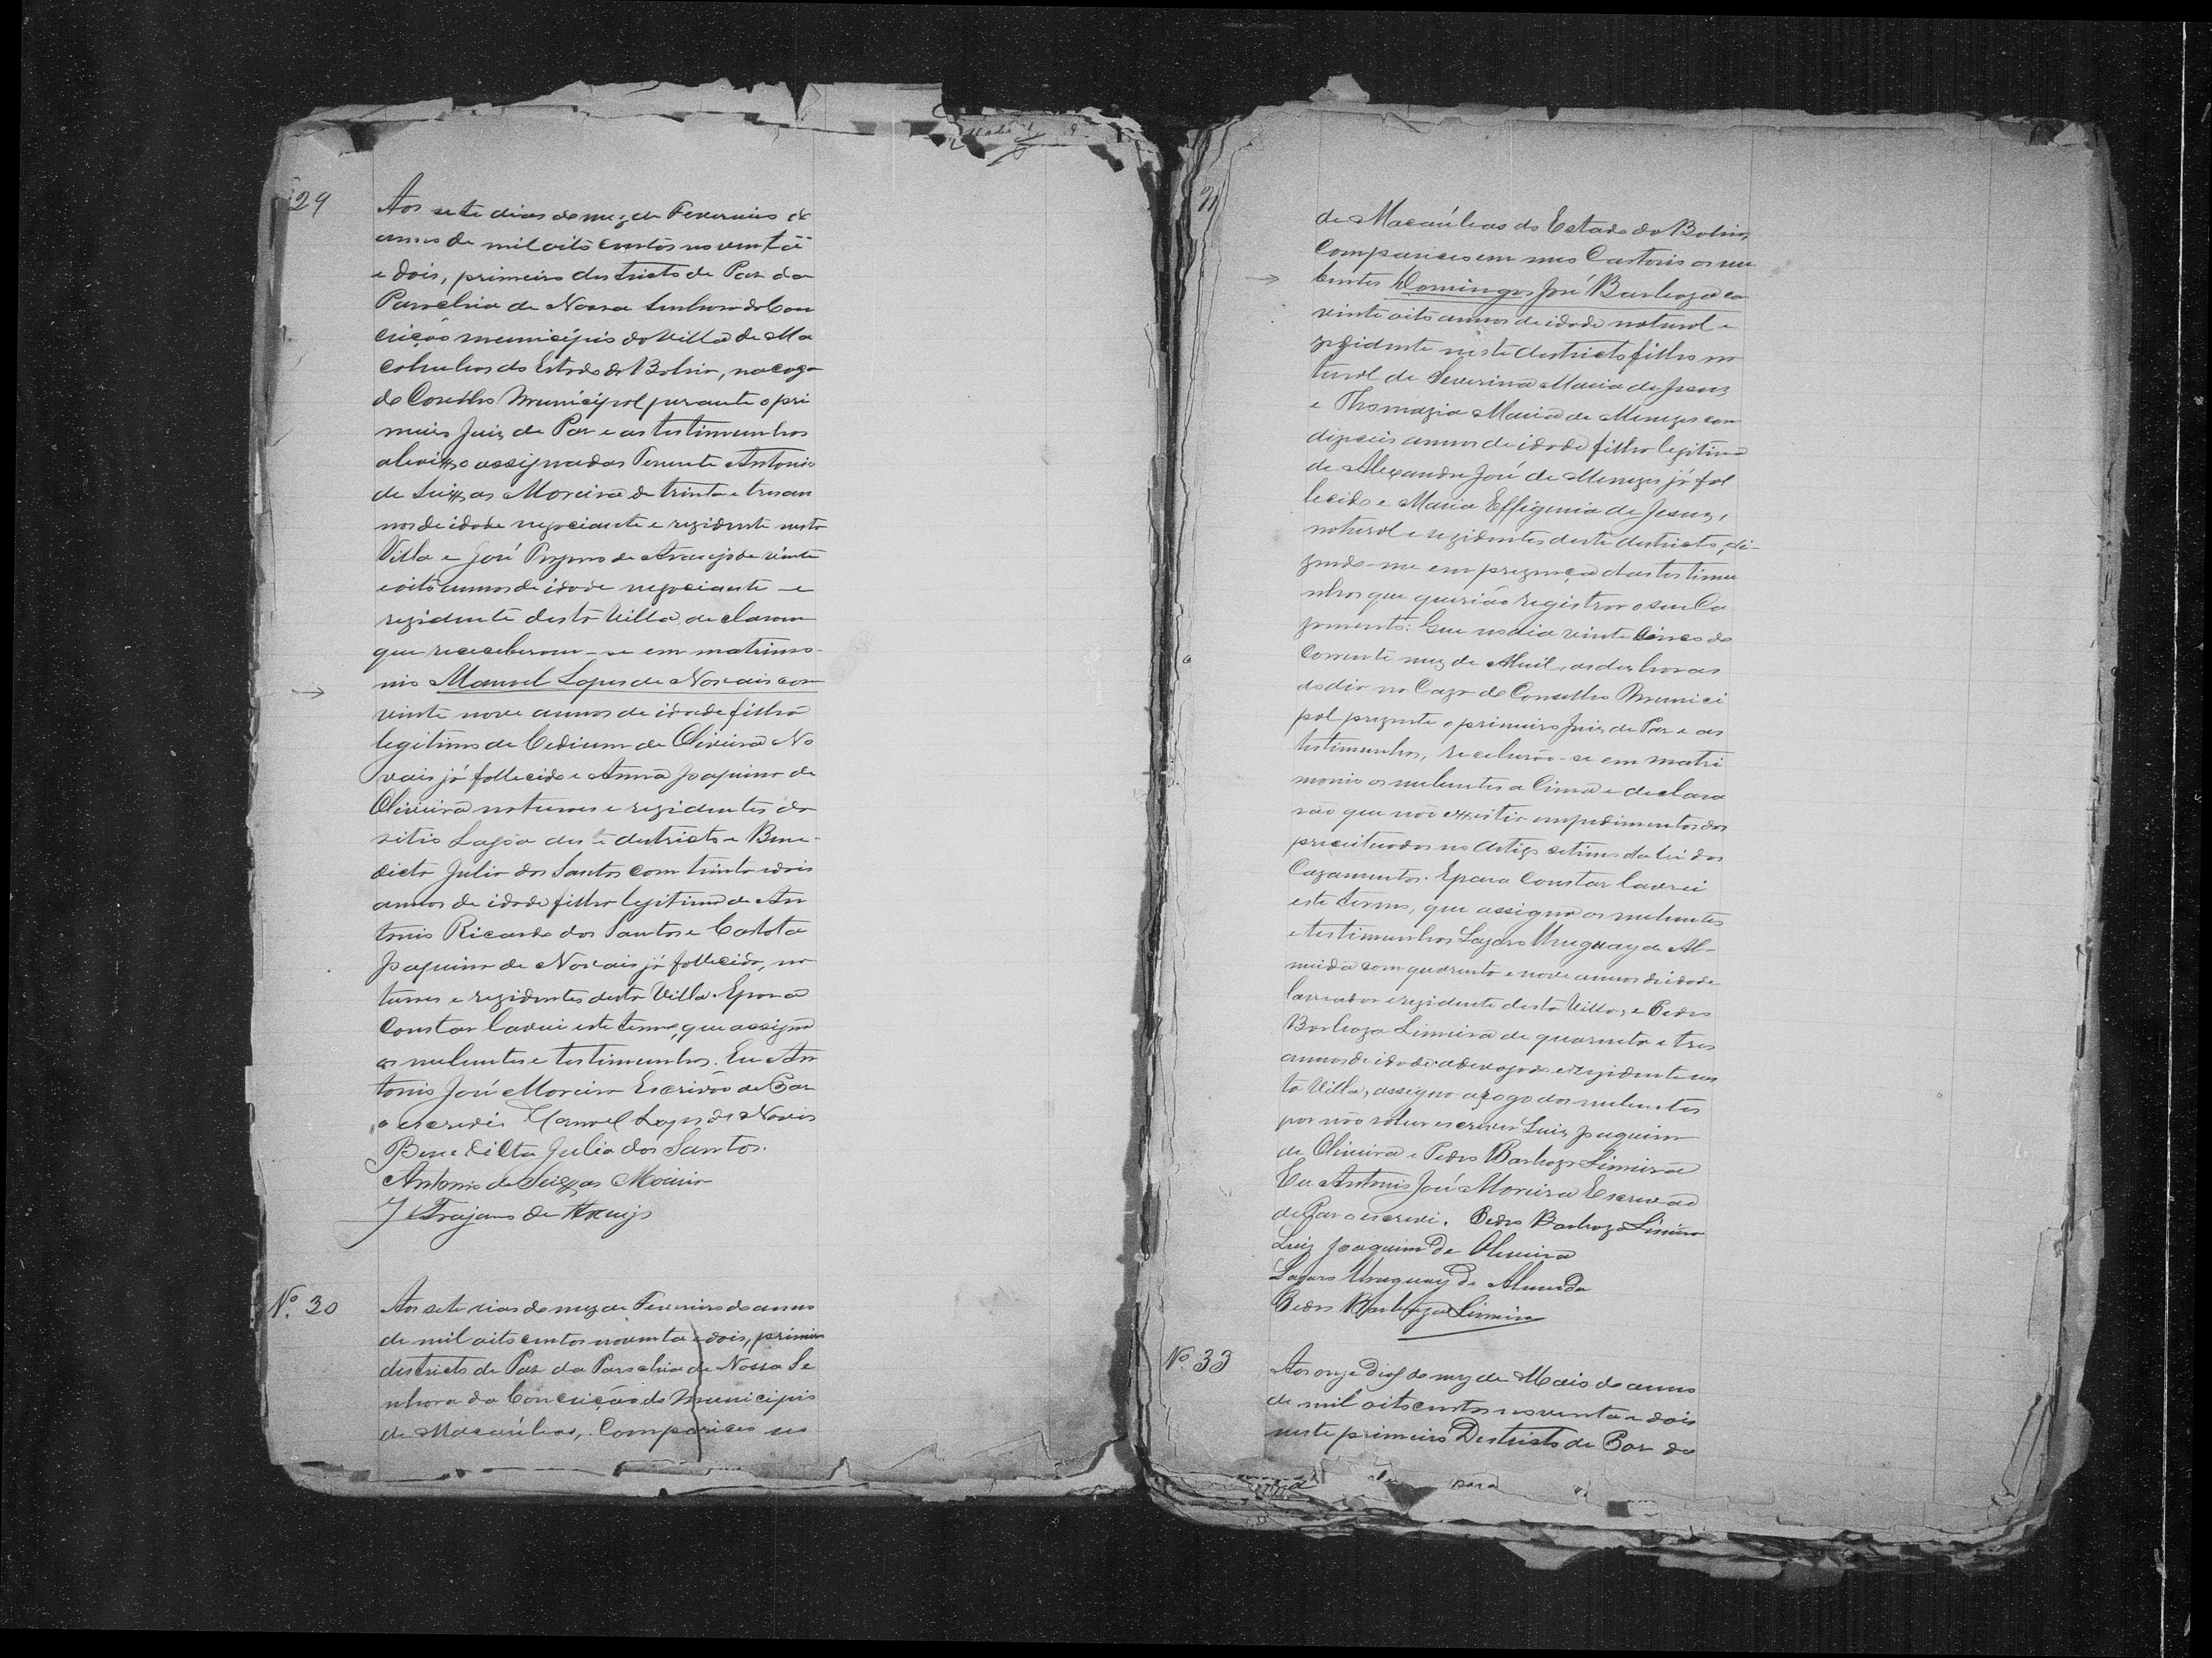 29
Aos sete dias do mez de Fevereiro do
anno de mil oito centos noventa
e dois, primeiro destricto de Paz da
Parochia de Nossa Senhora da Con
ceição municipio da Villa de Ma
cahubas do Estado da Bahia, na caza
do Conselho Municipal perante o pri
meiro Juiz de Paz e as testimunhas
abaixo assignadas Tenente Antonio
de Seixas Moreira de trinta e tres an
nos de idade negociante e rezidente nesta
Villa e José Trajano de Araujo de vinte
e oito annos de idade negociante e
rezidente desta Villa, declaram
que rececberam-se em matrimo-
nio Manoel Lopes de Novais com
vinte nove annos de idade filho
legitimo de de Oliveira No
vais já fallecido e Anna Joaquina de
Oliveira naturaes e rezidentes do
sitio Lagôa deste destricto e Bene-
dicta Julia dos Santos com trinta e dois
annos de idade filha legitima de An
tonio Ricardo dos Santos e Carlota
Joaquina de Novais já fallecida, na
turaes e rezidentes desta Villa. E para
Constar lavrei este termo, que assigna
os nubentes e testimunhas. Eu An
tonio José Moreira Escrivão de Paz
o escrevi. Manoel Lopes de Novais
Benedicta Julia dos Santos.
Antonio de Seixas Moreira
J Trajano de Araujo
Nº. 30
Aos sete dias do mez de Fevereiro do anno
de mil oito centos noventa e dois, primeiro
destricto de Paz da Parochia de Nossa Se
nhora da Conceição do Municipio
de Macaúbas, Compareceo no
de Macaúbas do Estado da Bahia,
Compareceo em meo Cartorio os nu
bentes Domingos José Barboza co
vinte oito annos de idade natural e
rezidente neste destricto filho na
tural de Severina Maria de Jesus,
e Thomazia Maria de Menezes com
dizeceis annos de idade filha legitima
de Alexandre José de Menezes já fal
lecido e Maria Effigenia de Jesus,
natural e rezidentes deste destricto, di-
zendo-me em prezença das testimu
nhas que querião registrar o seu Ca
zamento: Que no dia vinte Cinco do
Corrente mez de Abril, as dez horas
do dia na Caza do Conselho Munici
pal prezente o primeiro Juiz de Paz e as
testimunhas, receberão-se em matri
monio os nubentes a Cima e declara
rão que não existir empedimentos dos
preceituados no Artigo setimo da lei dos
Cazamentos. E para Constar lavrei
este termo, que assigna os nubentes
e testimunhas Lazaro Uruguay de Al-
meida com quarenta e nove annos de idade
lavrador e rezidente desta Villa, e Pedro
Barboza Limeira de quarenta e tres
annos de idade advogado e rezidente nes
ta Villa, assigna a rogo dos nubentes
por não saber escrever Luiz Joaquim
de Oliveira e Pedro Barboza Limeira
Eu Antonio José Moreira Escrivão
de Paz o escrevi. Pedro Barboza Limeira
Luiz Joaquim de Oliveira
Lazaro Uruguay de Almeida
Pedro Barboza Limeira
Nº. 33
Aos onze dias do mez de Maio do anno
de mil oitocentos noventa e dois
neste primeiro Destricto de Paz da
para